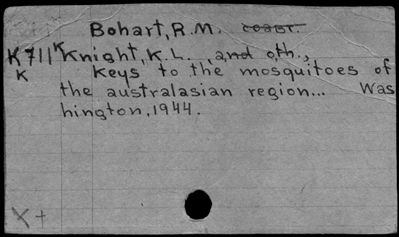 Bohart, R.M. coaut.
K711K Knight, K.L., and oth.,
K Keys to the mosquitoes of
the australasian region... Was
hington, 1944.
X +